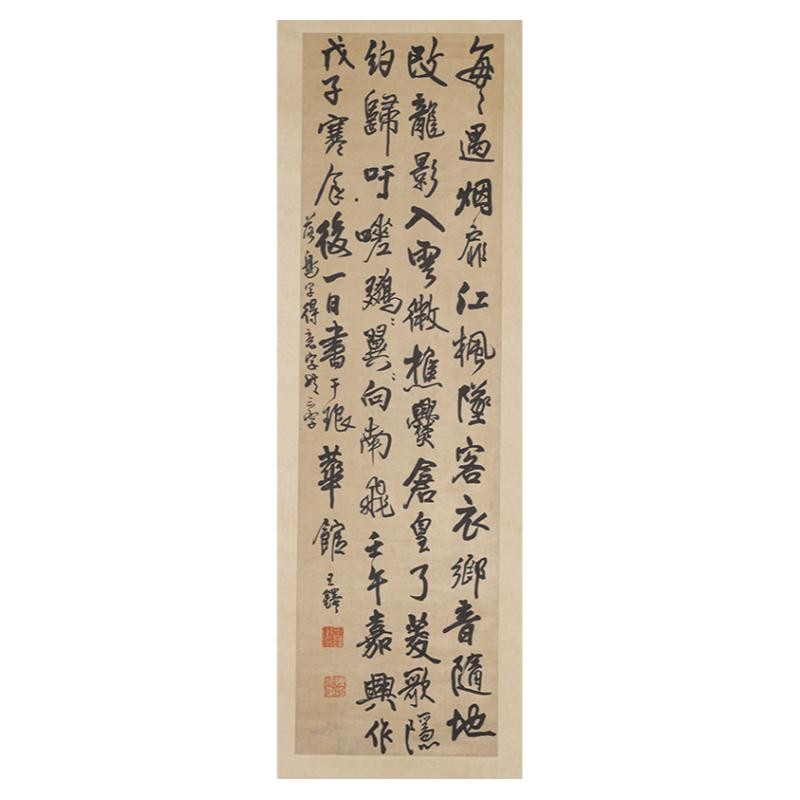 每々遇烟扉江楓墜客衣鄉音隨地
改龍影入雲微樵爨倉皇了菱歌隱
約歸吁嗟鷄翼向南飛壬午嘉興作
戊子寒食後一日書于琅華館王鐸
落鳥字得意字